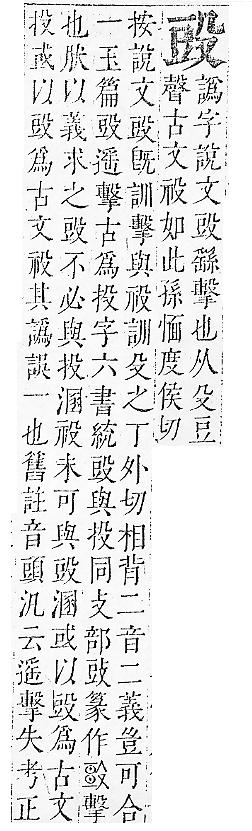 𣪌
譌字說文𣪌繇擊也从殳豆
聲古文祋如此孫愐度侯切
按說文𣪌既訓擊與祋訓殳之丁外切相背二音二義豈可合
一玉篇𣪌遥擊古爲投字六書統𣪌與投同攴部篆作擊
也肰以義求之𣪌不必與投溷祋未可與𣪌溷或以𣪌爲古文
投或以𣪌爲古文祋其譌誤一也舊註音頭汎云遥擊失考正